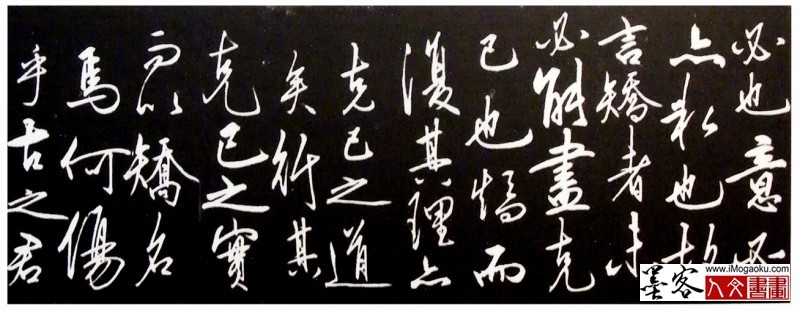 必也意必
亦私也故
言矯者未
必能盡克
己也矯而
復其理亦
克己之道
矣行其
克己之實
而以矯名
焉何傷
乎古之君
墨客
www.iMogaoku.com
人文書畫